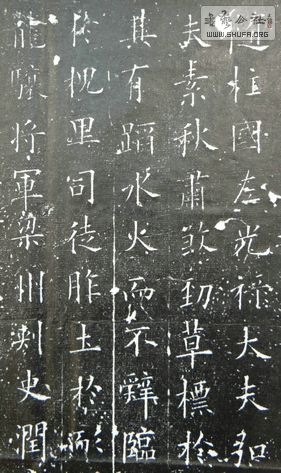 書藝公社
WWW.SHUFA.ORG
隨柱國左光祿大夫弘
夫素秋肅煞勁草標於
其有蹈水火而不辭臨
於槐里司徒胙土於耏
龍驤將軍梁州刺史潤